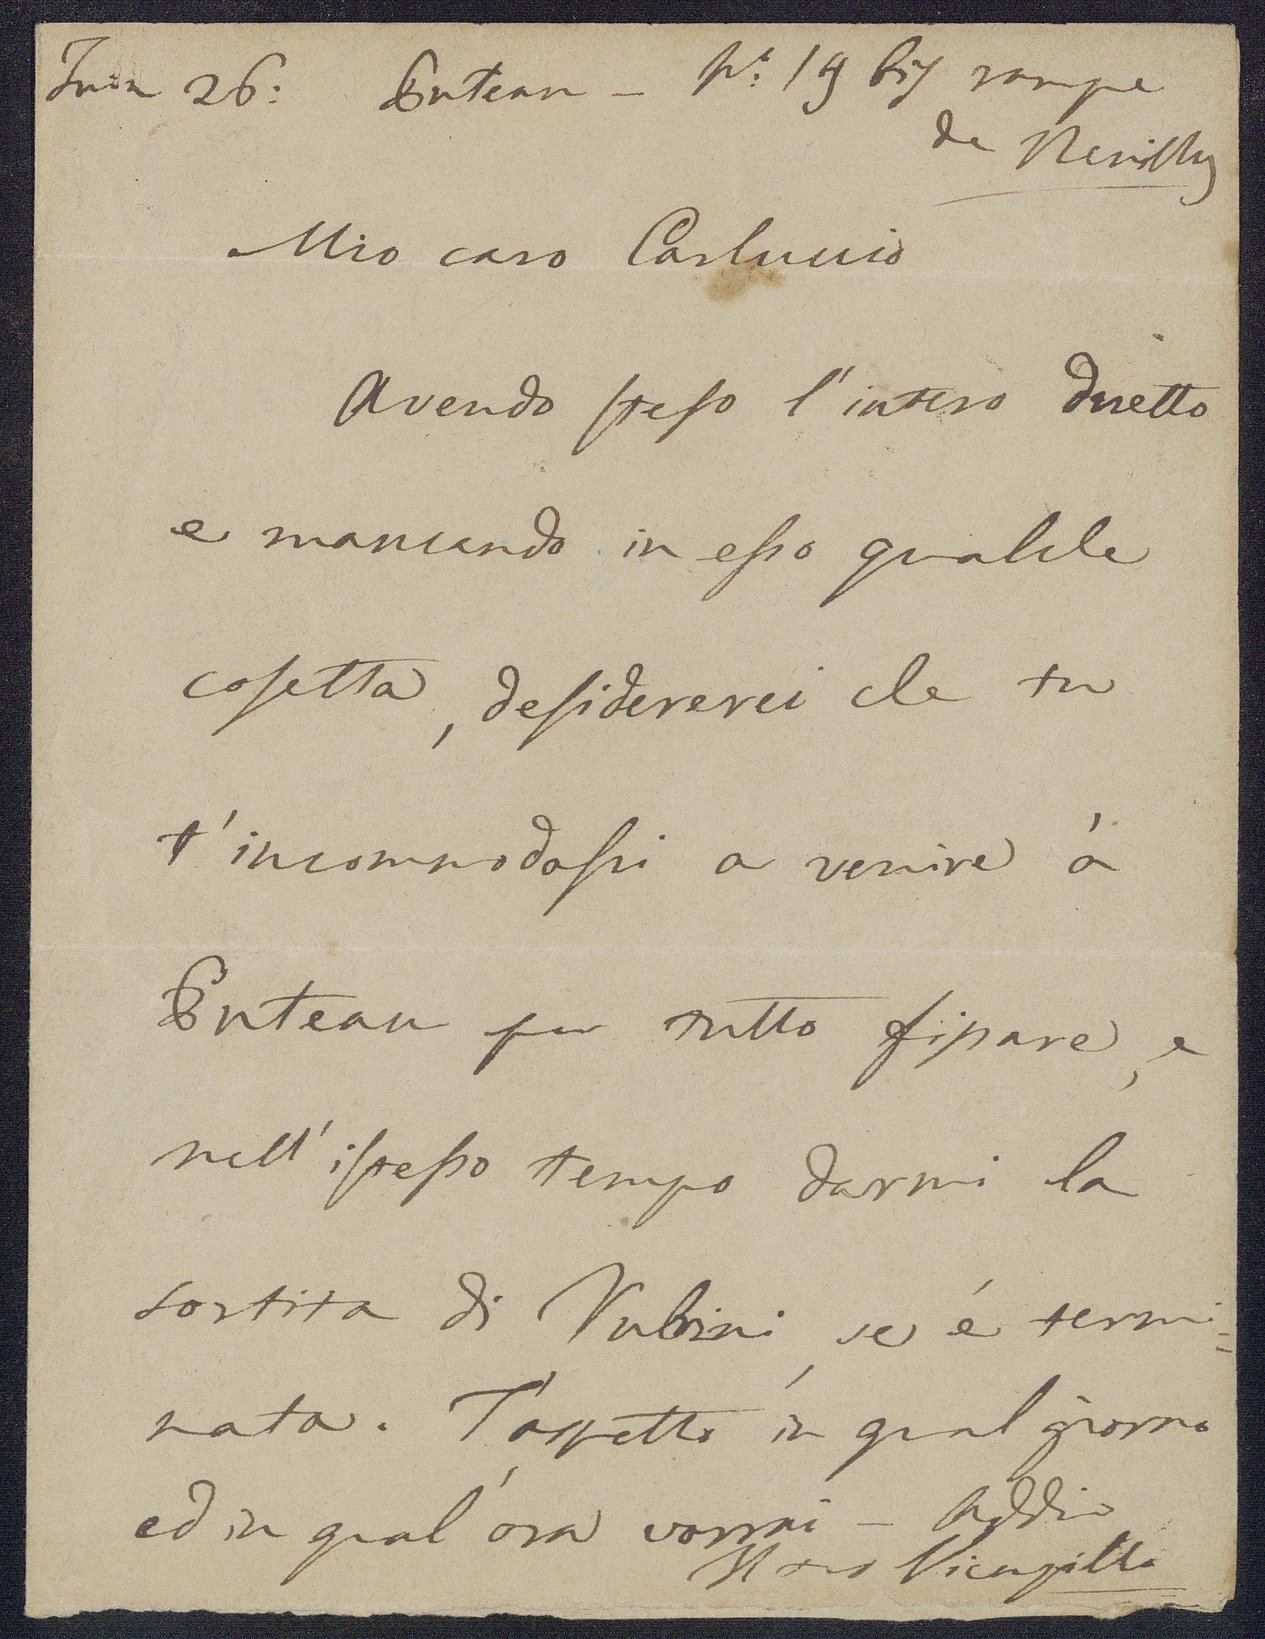 Juin 26: Puteau – N.º 19 bis rampe
de Neuilly
Mio caro Carluccio
Avendo steso l'intero duetto
e mancando in esso qualche
cosetta, desidererei che tu
t'incommodassi a venire à
Puteau per tutto fissare, e
nell'istesso tempo darmi la
sortita di Rubini, se é termi=
nata. T'aspetto in qual giorno
ed in qual'ora vorrai – Addio
Il tuo